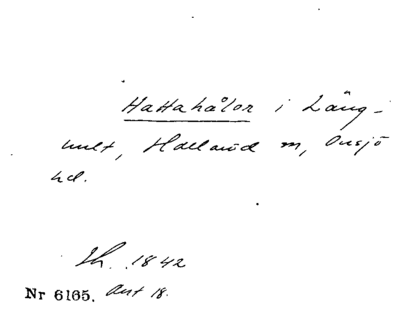 Hattahålor i Läng-
hult, Halland m, Onsjö
hd.
Th. 1842
Nr 6165. Ant 18.